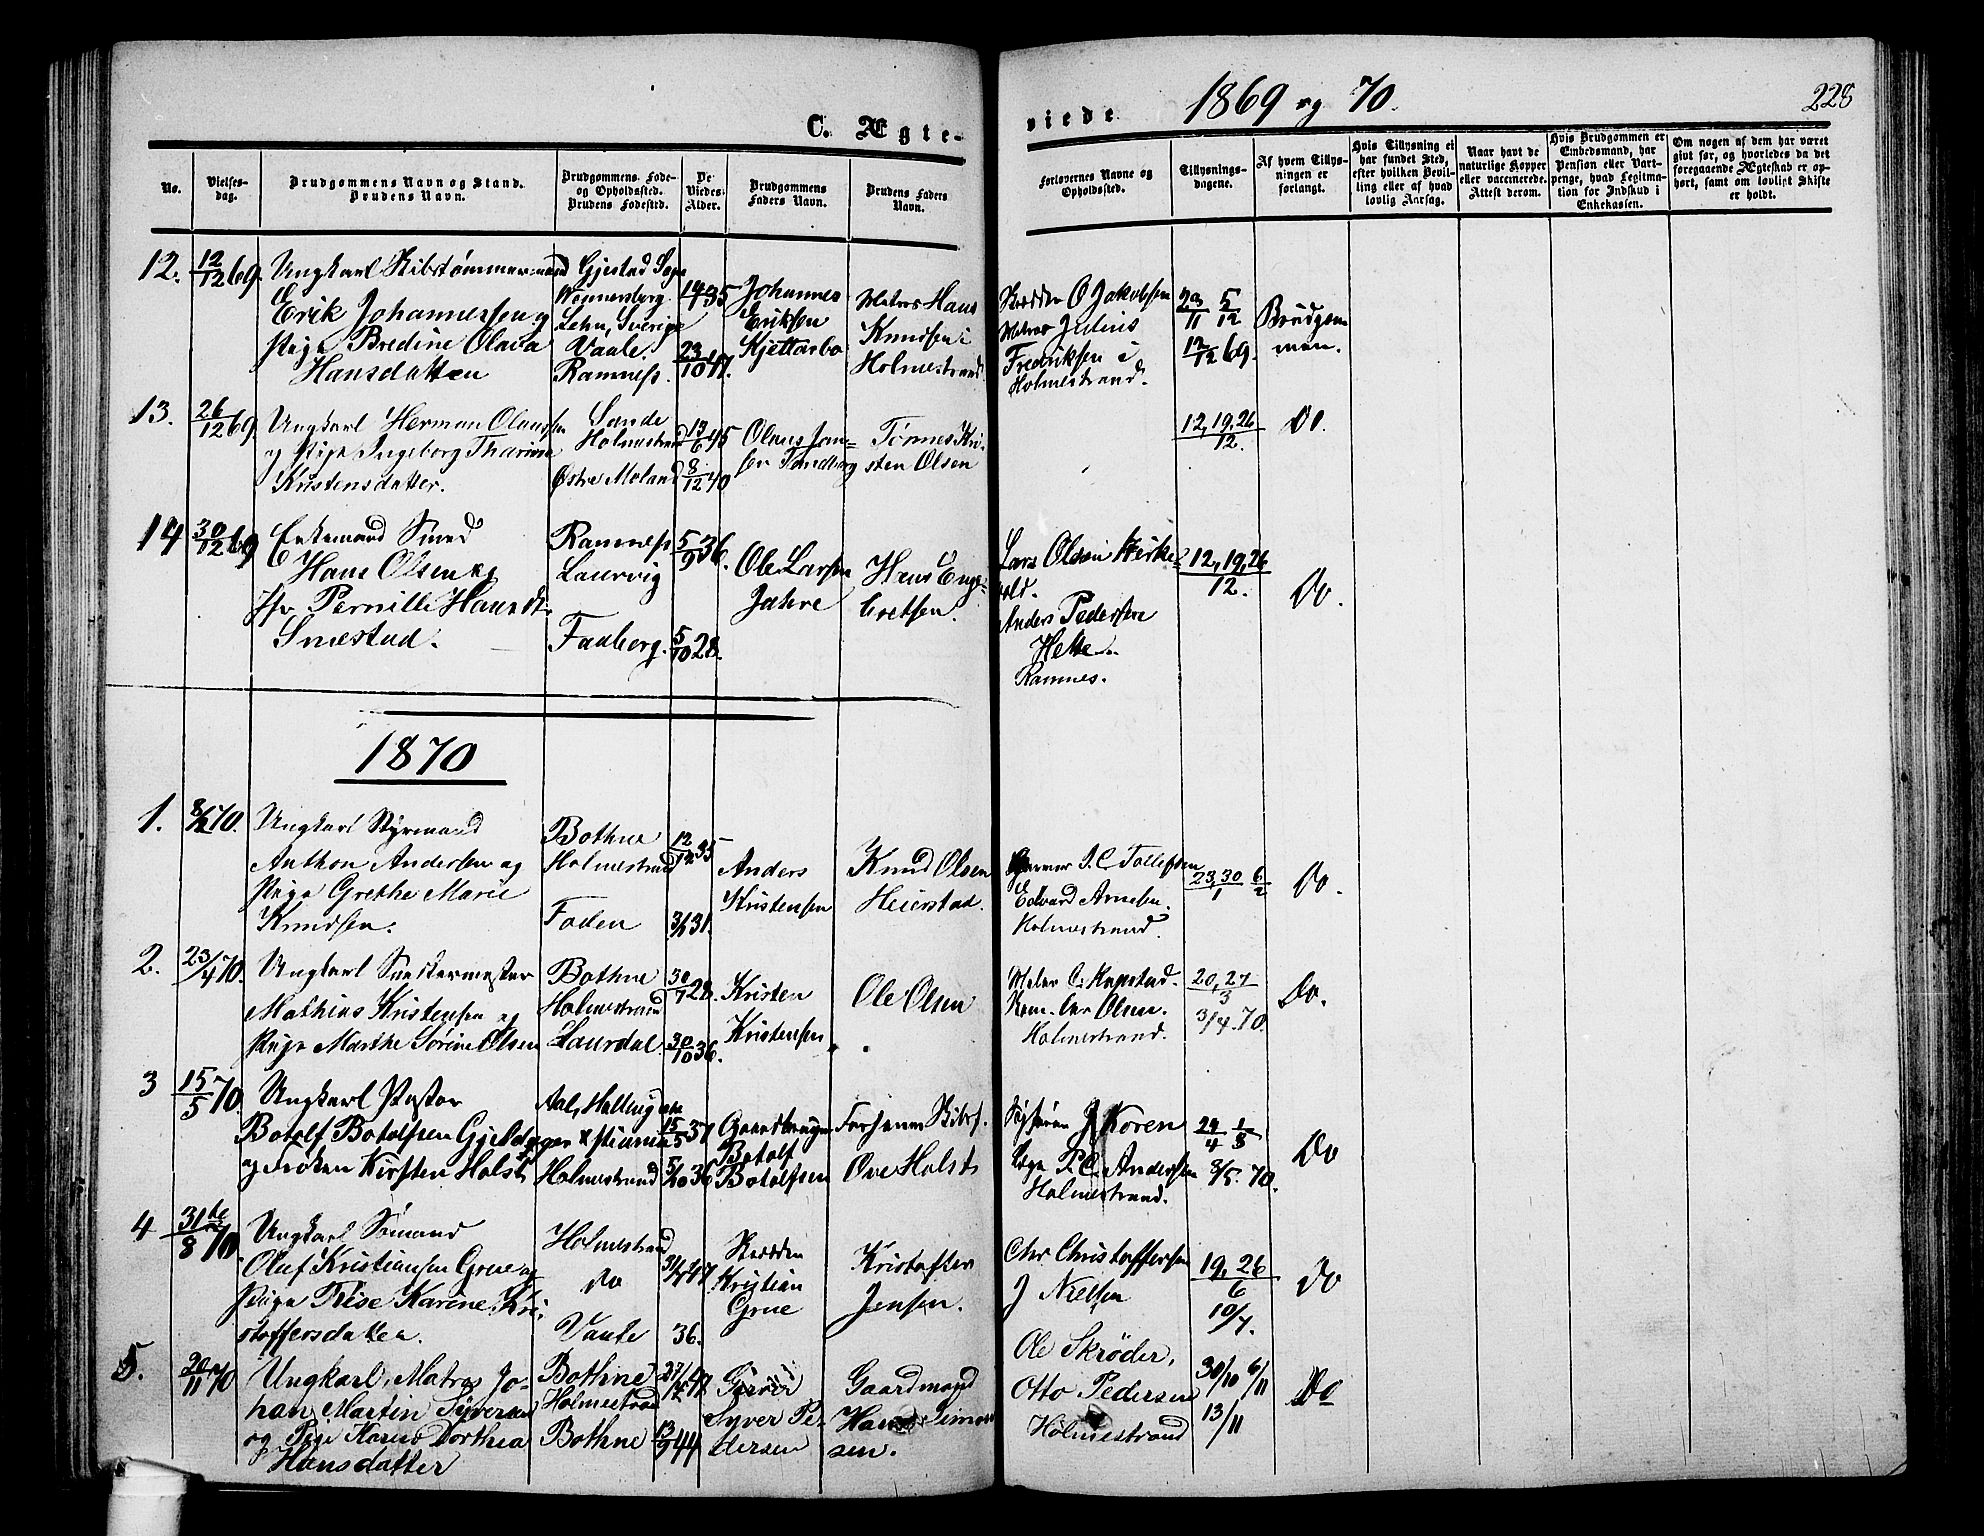 1869 og 70.
228
C. Ægte-
viede
No.
Vielses-
dag.
Brudgommens Navn og Stand.
Brudens Navn.
Brudgommens Føde-
og Opholdssted.
Brudens Fødested.
De
Viedes
Alder.
Brudgommens
Faders Navn.
Brudens Faders
Navn.
Forlovernes Navne og
Opholdssted.
Tillysnings-
dagene.
Af hvem Tillys-
ningen er
forlangt.
Hvis Tillysning ei
har fundet Sted,
efter hvilken Bevil-
ling eller af hvad
lovlig Aarsag.
Naar havt de
naturlige Kopper
eller vaxinerede.
Attest derom.
Hvis Brudgommen er
Embedsmand, har
Pension eller Vart-
penge, hvad Legitima-
tion for Indskud i
Enkekassen.
Om nogen af dem har været
givt før, og hvorledes da det
foregaaende Ægteskab er op-
hørt, samt om lovligt Skifte
er holdt.
12.
12/12 69.
Ungkarl Skibstømmermand
Erik Johannessen og
Pige Bredine Olava
Hansdatten
Gjestad Sogn
Wennersborg
Lehn, Sverige
Vaale.
Ramness.
35
23/10 47.
Johannes
Eriksen
Kjettarbo
Matros Hans
Knudsen i
Holmestrand.
Skrædder O Jakobsen
Matros Julius
Fredriksen i
Holmestrand.
5/12
12/12 69.
Brudgom-
men.
13.
26/12 69
Ungkarl Herman Olaussen
og Pige Ingeborg Tharine
Kristensdatter.
Sande
Holmestrand
Østre Moland
13/6 45
8/12 40
Olaus Jan-
sen Sandberg
Tønnes Kri-
sten Olsen
12, 19, 26
12.
Do.
14
30/12 69
Enkemand Smed
Hans Olsen og
Pernille Hansdtr
Smestad.
Ramness
Laurvig
Faaberg.
5/9 36.
5/10 28.
Ole Larsen
Jahre
Hans Enge-
bretsen.
Lars Olsen Kirke-
vold.
Anders Pedersen
Helte.
Ramnes.
12, 19, 26
12.
Do.
1870
1.
8/2 70.
Ungkarl Styrmand
Anthon Andersen og
Pige Grethe Marie
Knudsen.
Bothne
Holmestrand
Foden
12/12 35
31.
Anders
Kristensen
Knud Olsen
Heierstad.
Garver I. C Tollefsen
Edvard Arnesen.
Holmestrand.
23, 30/1 6/2
Do.
2.
23/4 70.
Ungkarl
Mathias Kristensen og
Pige Marthe Sørine Olsen
Bothne
Holmestrand
Laurdal.
28.
30/10 36.
Kristen
Kristensen
Ole Olsen
Maler C. Kapstad.
Olsen.
Holmestrand.
20, 27
3
3/4. 70.
Do.
3
15/5 70.
Ungkarl Pastor
Botolf Botolfsen Gjeldager
og Frøken Kirsten Holst
Aal, Hallingdal
Xstiania
Holmestrand
15/5 37
5/10 36
Gaardbruger
Botolf
Botolfsen
Ove Holst
J Koren
P. C. Andersen
Holmestrand.
24/4 1/5
8/5. 70.
Do
4
31te/8 70
Ungkarl Sømand
Oluf Kristiansen Grue og
Pige Trise Karine Kri-
stoffersdatter.
Holmestrand
do
Vaale
47
36.
Skrædder
Kristian
Grue
Kristoffer
Jensen.
Chr Christoffersen
J Nielsen
19, 26
6
10/7.
Do
5.
20/11 70
Ungkarl, Matros Jo-
han Martin Syversen
og Pige Karen Dorthea
Hansdatter
Bothne
Holmestrand
Bothne
27/4 47
44
Garver
Syver Pe-
dersen
Gaardmand
Hans Simon-
sen.
Ole Skrøder,
Otto Pedersen
Holmestrand
30/10 6/11
13/11
Do